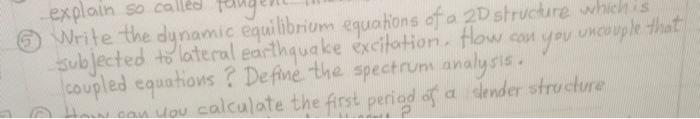 explain so called tangent
⑤ Write the dynamic equilibrium equations of a 2D structure which is
subjected to lateral earthquake excitation. How can you uncouple that
coupled equations? Define the spectrum analysis.
How can you calculate the first period of a slender structure